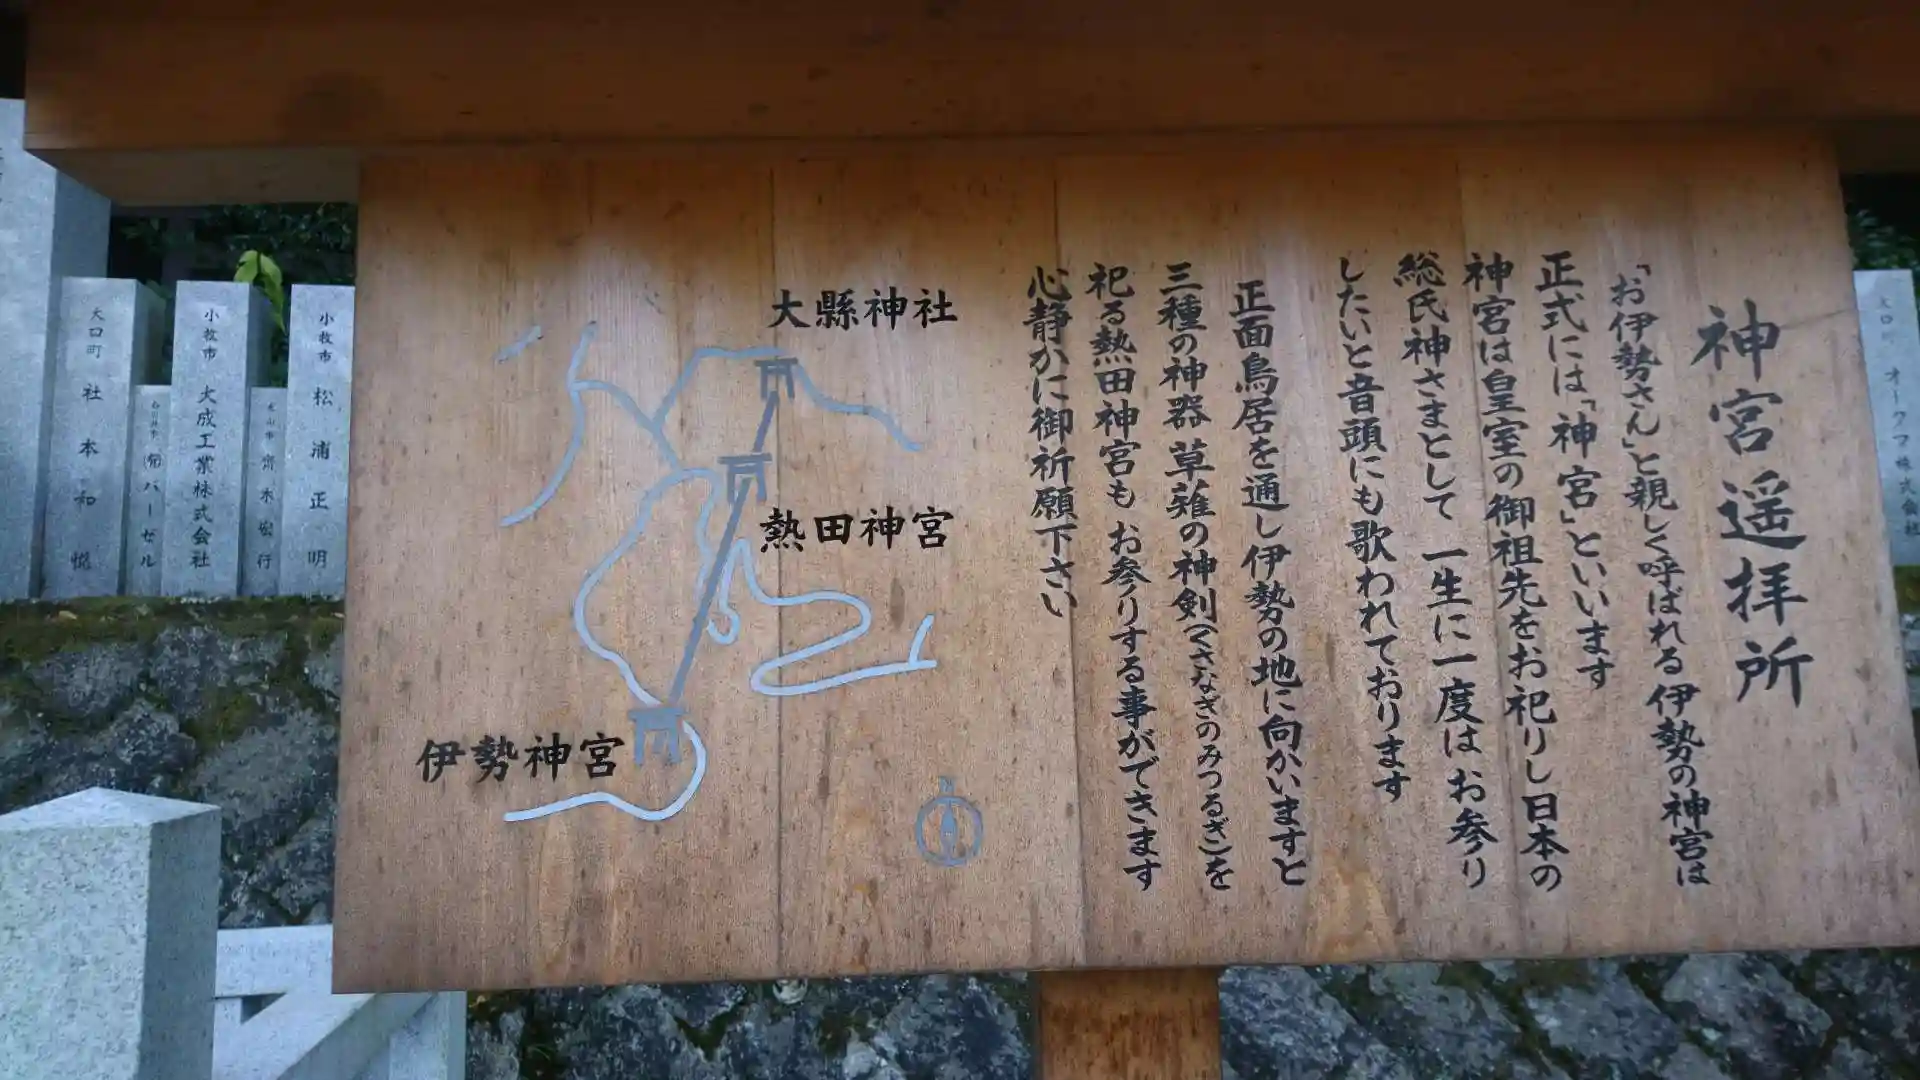 神宮遥拝所
「お伊勢さん」と親しく呼ばれる伊勢の神宮は
正式には「神宮」といいます
神宮は皇室の御祖先をお祀りし日本の
総氏神さまとして 一生に一度は お参り
したいと音頭にも歌われております
正面鳥居を通し伊勢の地に向かいますと
三種の神器 草薙の神剣(くさなぎのみつるぎ)を
祀る熱田神宮も お参りする事ができます
心静かに御祈願下さい
大縣神社
熱田神宮
伊勢神宮
小牧市 松浦正明
犬山市 齊木宏行
小牧市 大成工業株式会社
㈲バーゼル
大口町 社本和悦
大口町 オークマ株式会社